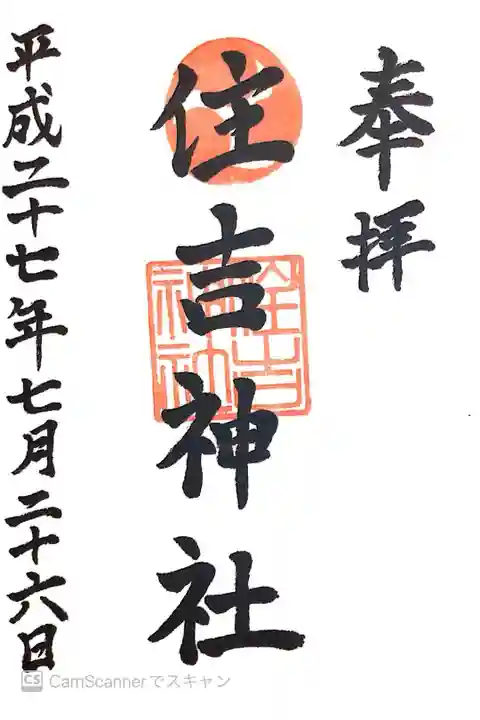 奉拝
住吉神社
住吉神社
平成二十七年七月二十六日
CS CamScannerでスキャン